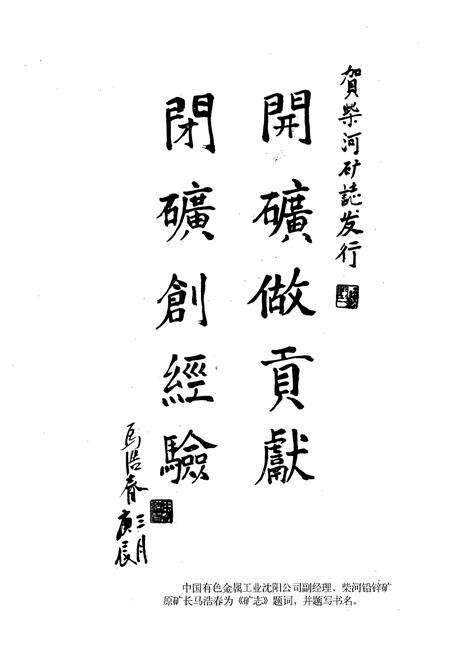 賀柴河矿誌发行
開礦做貢獻
閉礦創經驗
馬浩春
庚辰
三月
中国有色金属工业沈阳公司副经理、柴河铅锌矿
原矿长马浩春为《矿志》题词，并题写书名。